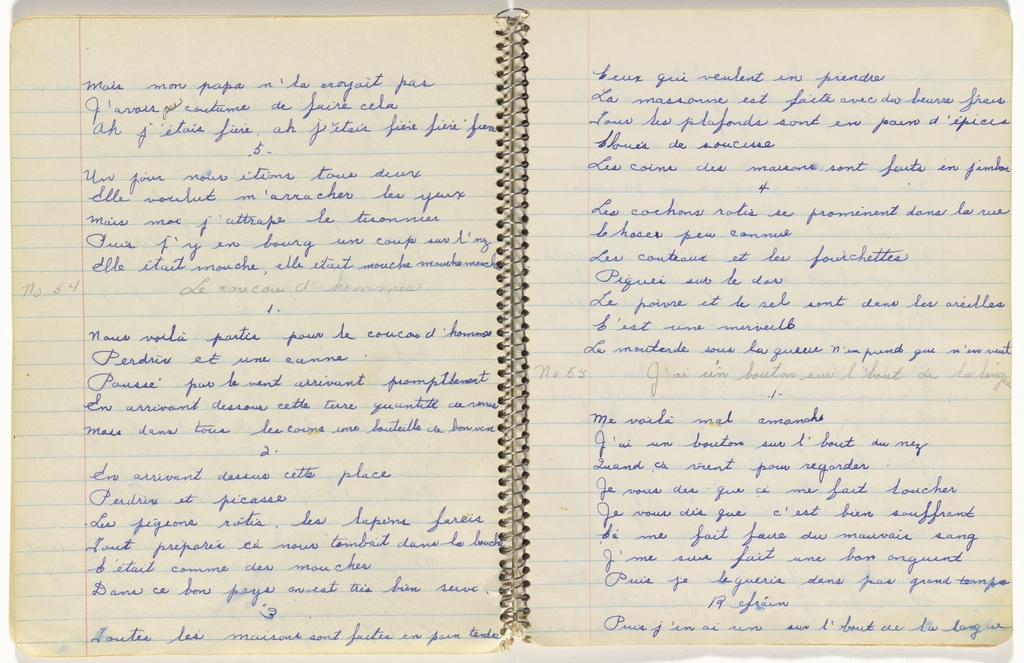 Mais mon papa n'la croyait pas
J'avais pas coutume de faire cela
Ah j'étais fière, ah j'étais fière fière fière
.5.
Un jour nous étions tous deux
Elle voulut m'arracher les yeux
Mais moi j'attrape le tisonnier
Puis j'y en bourg un coup sur l'nez
Elle était mouche, elle était mouche mouche mouche
No 54 Le coucou d'hommes
1.
Nous voilà partis pour le coucou d'homme
Perdrix et une cunne
Poussé par le vent arrivant promptement
En arrivant dessous cette terre quantité de
Mais dans tous les coins une bouteille de bon vin
2.
En arrivant dessus cette place
Perdrix et picasse
Les pigeons rôtis, les lapins farcis
Tout préparés ca nous tombait dans la bouche
C'était comme des mouches
Dans ce bon pays on est très bien servi.
3
Toutes les maisons sont faites en pain tendre
Ceux qui veulent en prendre
La massonne est faite avec du beurre frais
Tous les plafonds sont en pain d'épices
Cloués de soucisse
Les coins des maisons sont faits en jambon
4
Les cochons rotis se prominent dans la rue
Choses peu connue
Les couteaux et les fourchettes
Piquei sur le dos
Le poivre et le sel sont dans les oreilles
C'est une merveille
La moutarde sous la queue n'en prends qui n'en veut
No 55 J'ai un bouton sur l'bout de la langue
.1.
Me voilà mal amanché
J'ai un bouton sur l'bout du nez
Quand ca vient pour regarder
Je vous dis que ca me fait loucher
Je vous dis que c'est bien souffrant
Ca me fait faire du mauvais sang
J'me suis fait une bon onguent
Puis je le gueris dans pas grand temps
Refrain
Puis j'en ai un sur l'bout de la langue